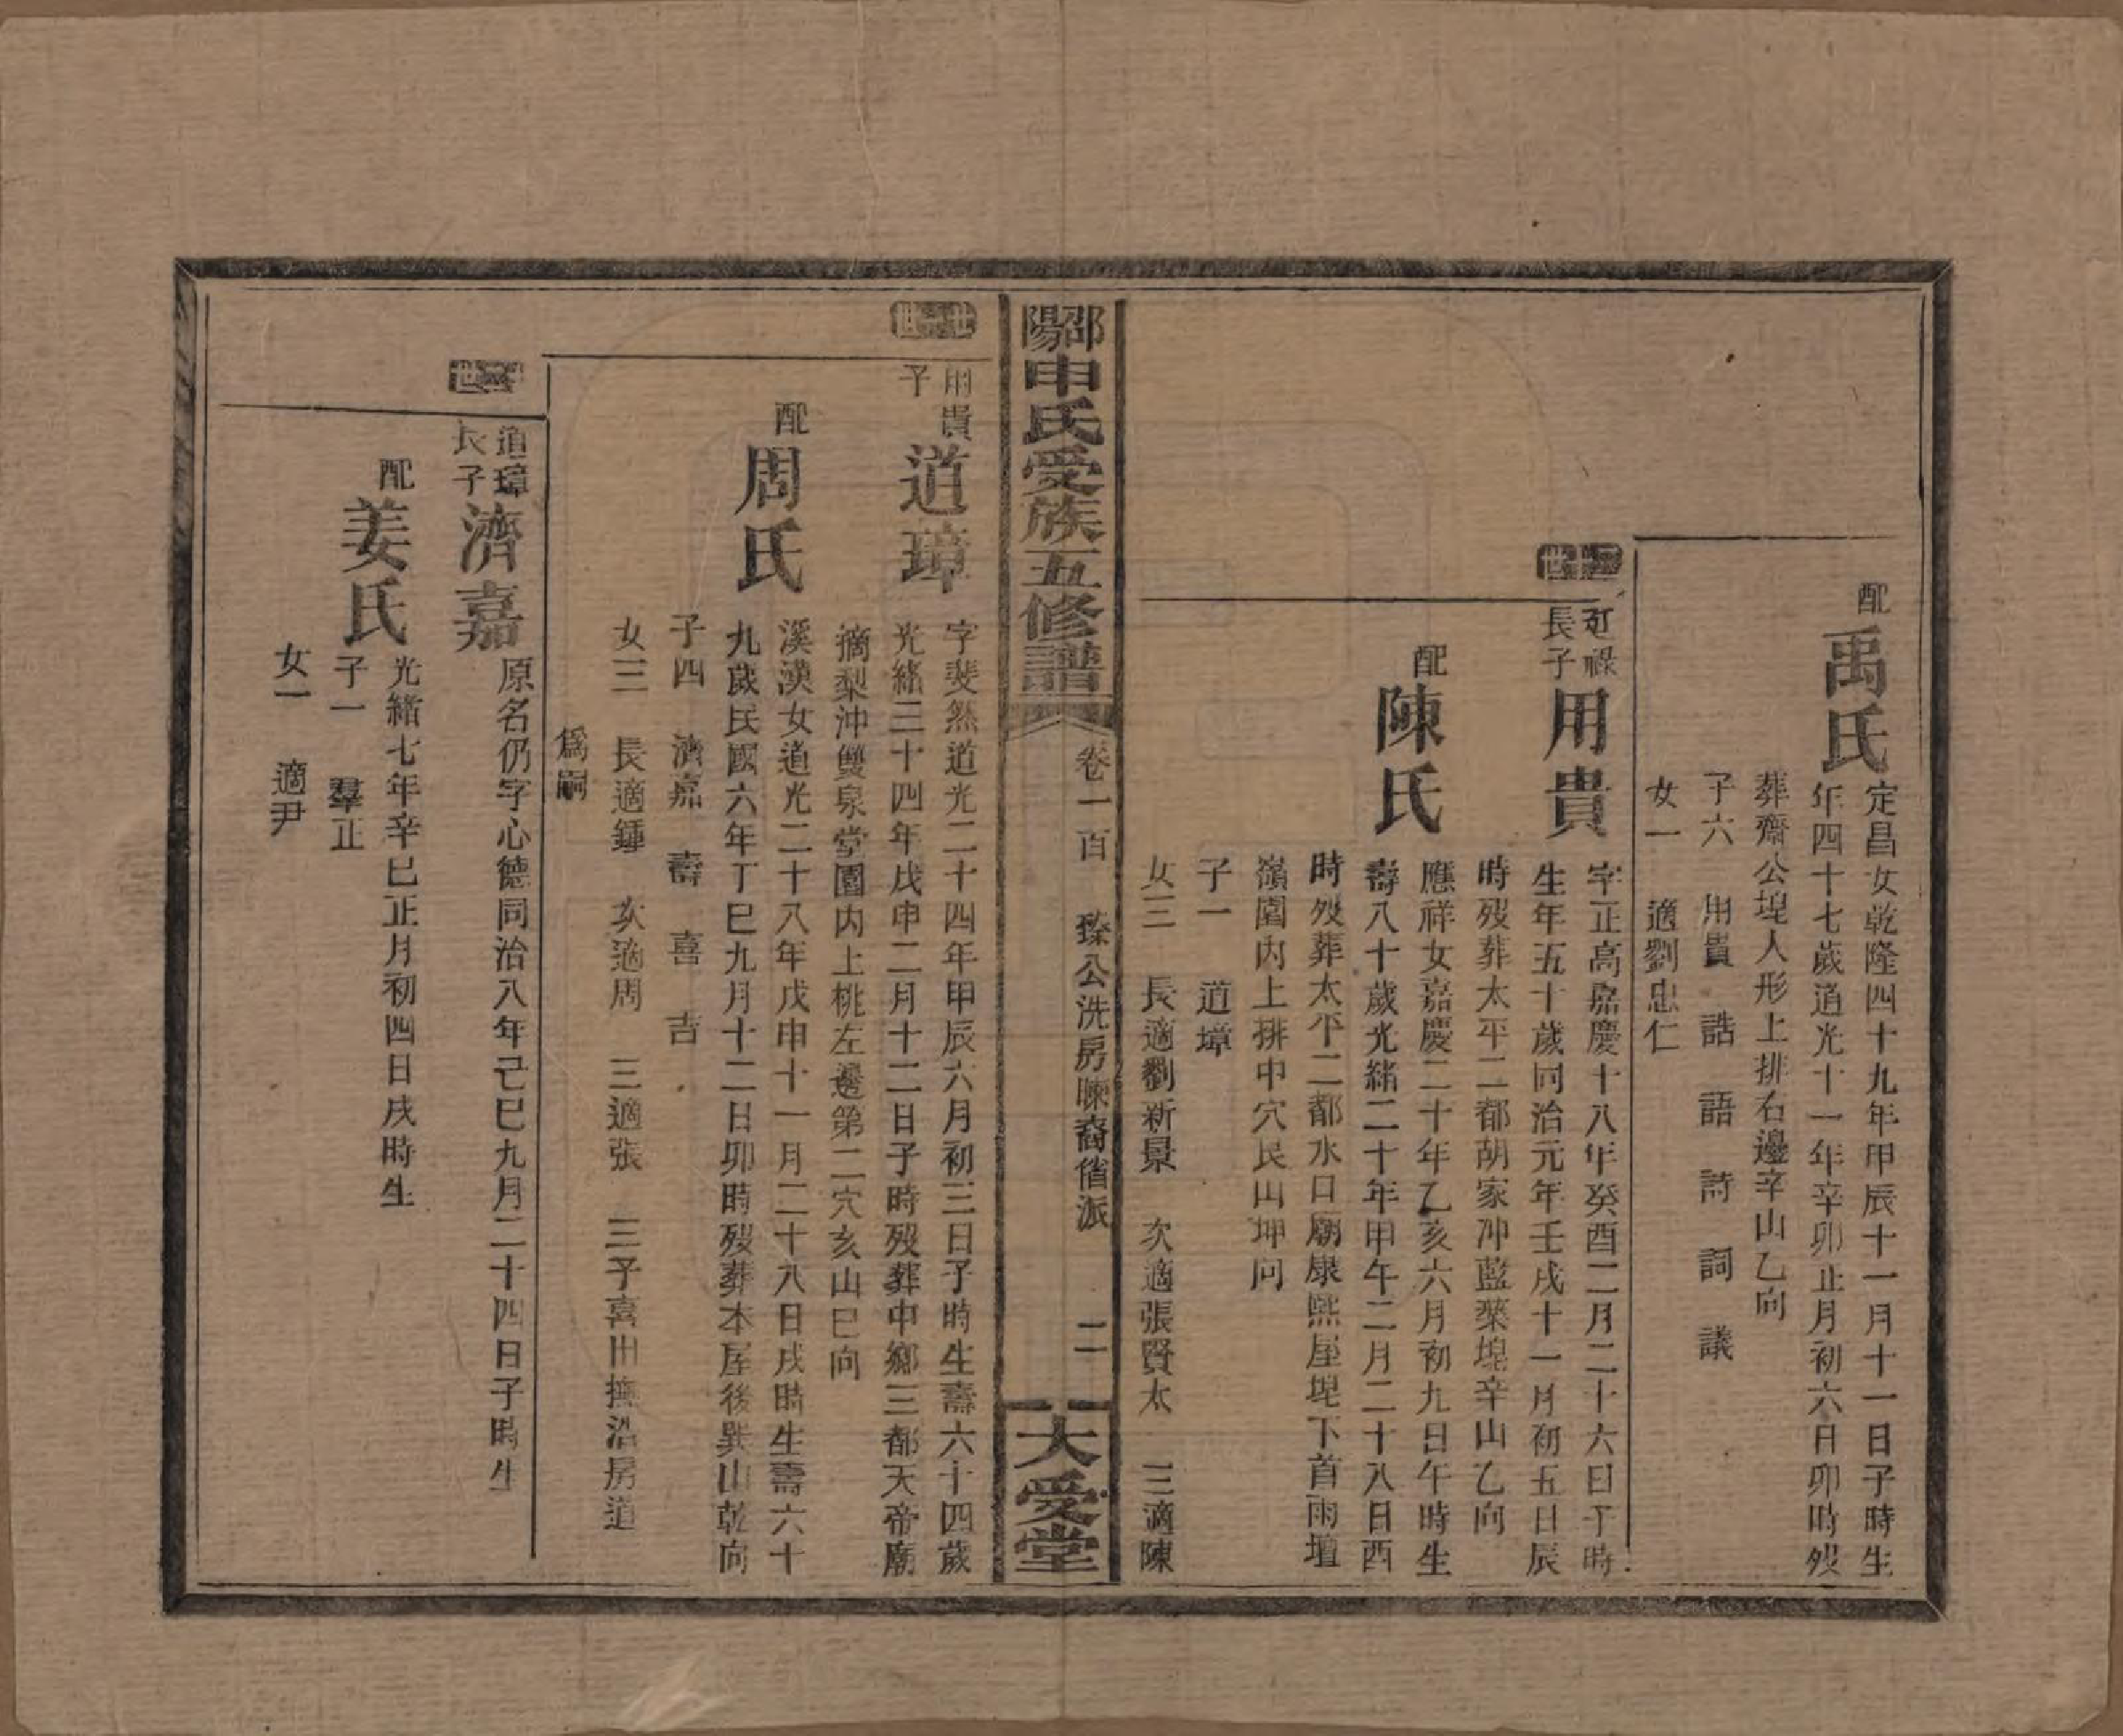 配
禹氏
定昌女乾隆四十九年甲辰十一月十一日子時生
年四十七歲道光十一年辛卯正月初六日卯時歿
葬齋公埠人形上排右邊辛山乙向
子六 用貴 誥 語 詩 詞 議
女一 適劉忠仁
廷祿
長子
用貴
字正高嘉慶十八年癸酉二月二十六日子時
生年五十歲同治元年壬戌十一月初五日辰
時歿葬太平二都胡家沖藍藥埠辛山乙向
配
陳氏
應祥女嘉慶二十年乙亥六月初九日午時生
壽八十歲光緒二十年甲午二月二十八日酉
時歿葬太平二都水口廟康熙屋埠下首雨壇
嶺園內上排中穴艮山坤向
子一 道璋
女三 長適劉新景 次適張賢太 三適陳
邵陽申氏受族五修譜
卷一百 臻公洗房暕裔偗派 二
大受堂
用貴
子
道璋
字斐然道光二十四年甲辰六月初三日子時生壽六十四歲
光緒三十四年戊申二月十二日子時歿葬中鄉三都天帝廟
摘梨沖雙泉堂園內上桃左邊第二穴亥山巳向
配
周氏
溪漢女道光二十八年戊申十一月二十八日戌時生壽六十
九歲民國六年丁巳九月十二日卯時歿葬本屋後巽山乾向
子四 濟嘉 壽 喜 吉
女三 長適鍾 次適周 三適張 三子喜出撫浩房道
爲嗣
道璋
長子
濟嘉
原名仍字心德同治八年己巳九月二十四日子時生
配
姜氏
光緒七年辛巳正月初四日戌時生
子一 羣正
女一 適尹